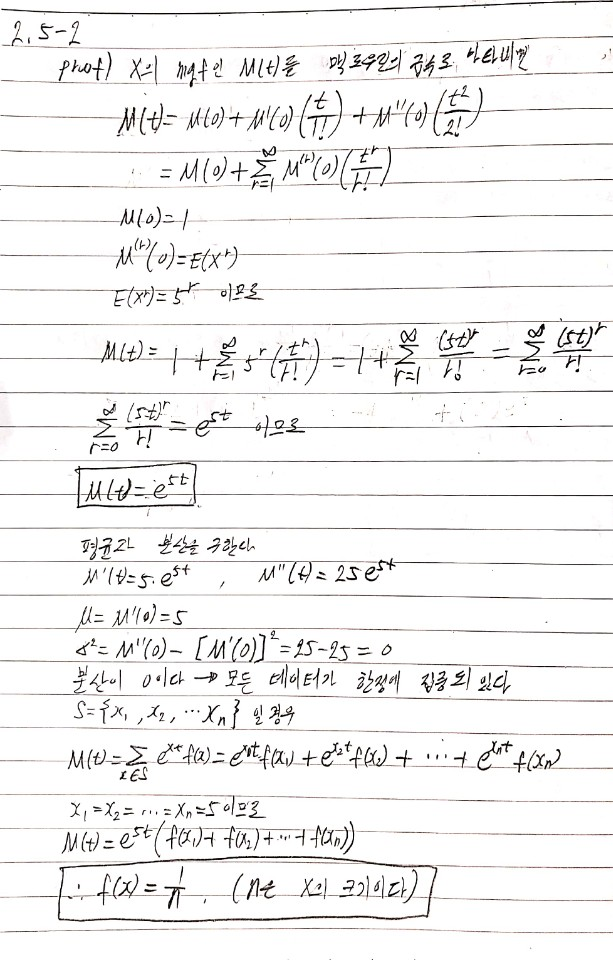 2.5-2
proof) X의 mgf인 M(t)를 맥로우린의 급수로 나타내면
M(t)= M(0)+M'(0)(t/1!)+M''(0)(t²/2!)
= M(0)+∑_{r=1}^{∞} M^{(r)}(0)(t^r/r!)
M(0)=1
M^{(r)}(0)=E(X^r)
E(X^r)=5^r 이므로
M(t)= 1+∑_{r=1}^{∞} 5^r(t^r/r!)=1+∑_{r=1}^{∞} (5t)^r/r! = ∑_{r=0}^{∞} (5t)^r/r!
∑_{r=0}^{∞} (5t)^r/r! = e^{5t} 이므로
M(t)=e^{5t}
평균과 분산을 구한다
M'(t)=5·e^{5t} , M''(t)=25e^{5t}
μ=M'(0)=5
σ²=M''(0)-[M'(0)]²=25-25=0
분산이 0이다 → 모든 데이터가 한점에 집중되 있다
S={x₁, x₂, ⋯ xₙ} 일 경우
M(t)=∑_{x∈S} e^{xt}f(x)=e^{x₁t}f(x₁)+e^{x₂t}f(x₂)+⋯+e^{xₙt}f(xₙ)
x₁=x₂=⋯=xₙ=5 이므로
M(t)=e^{5t}(f(x₁)+f(x₂)+⋯+f(xₙ))
∴ f(x)=1/n . (n은 X의 크기이다)